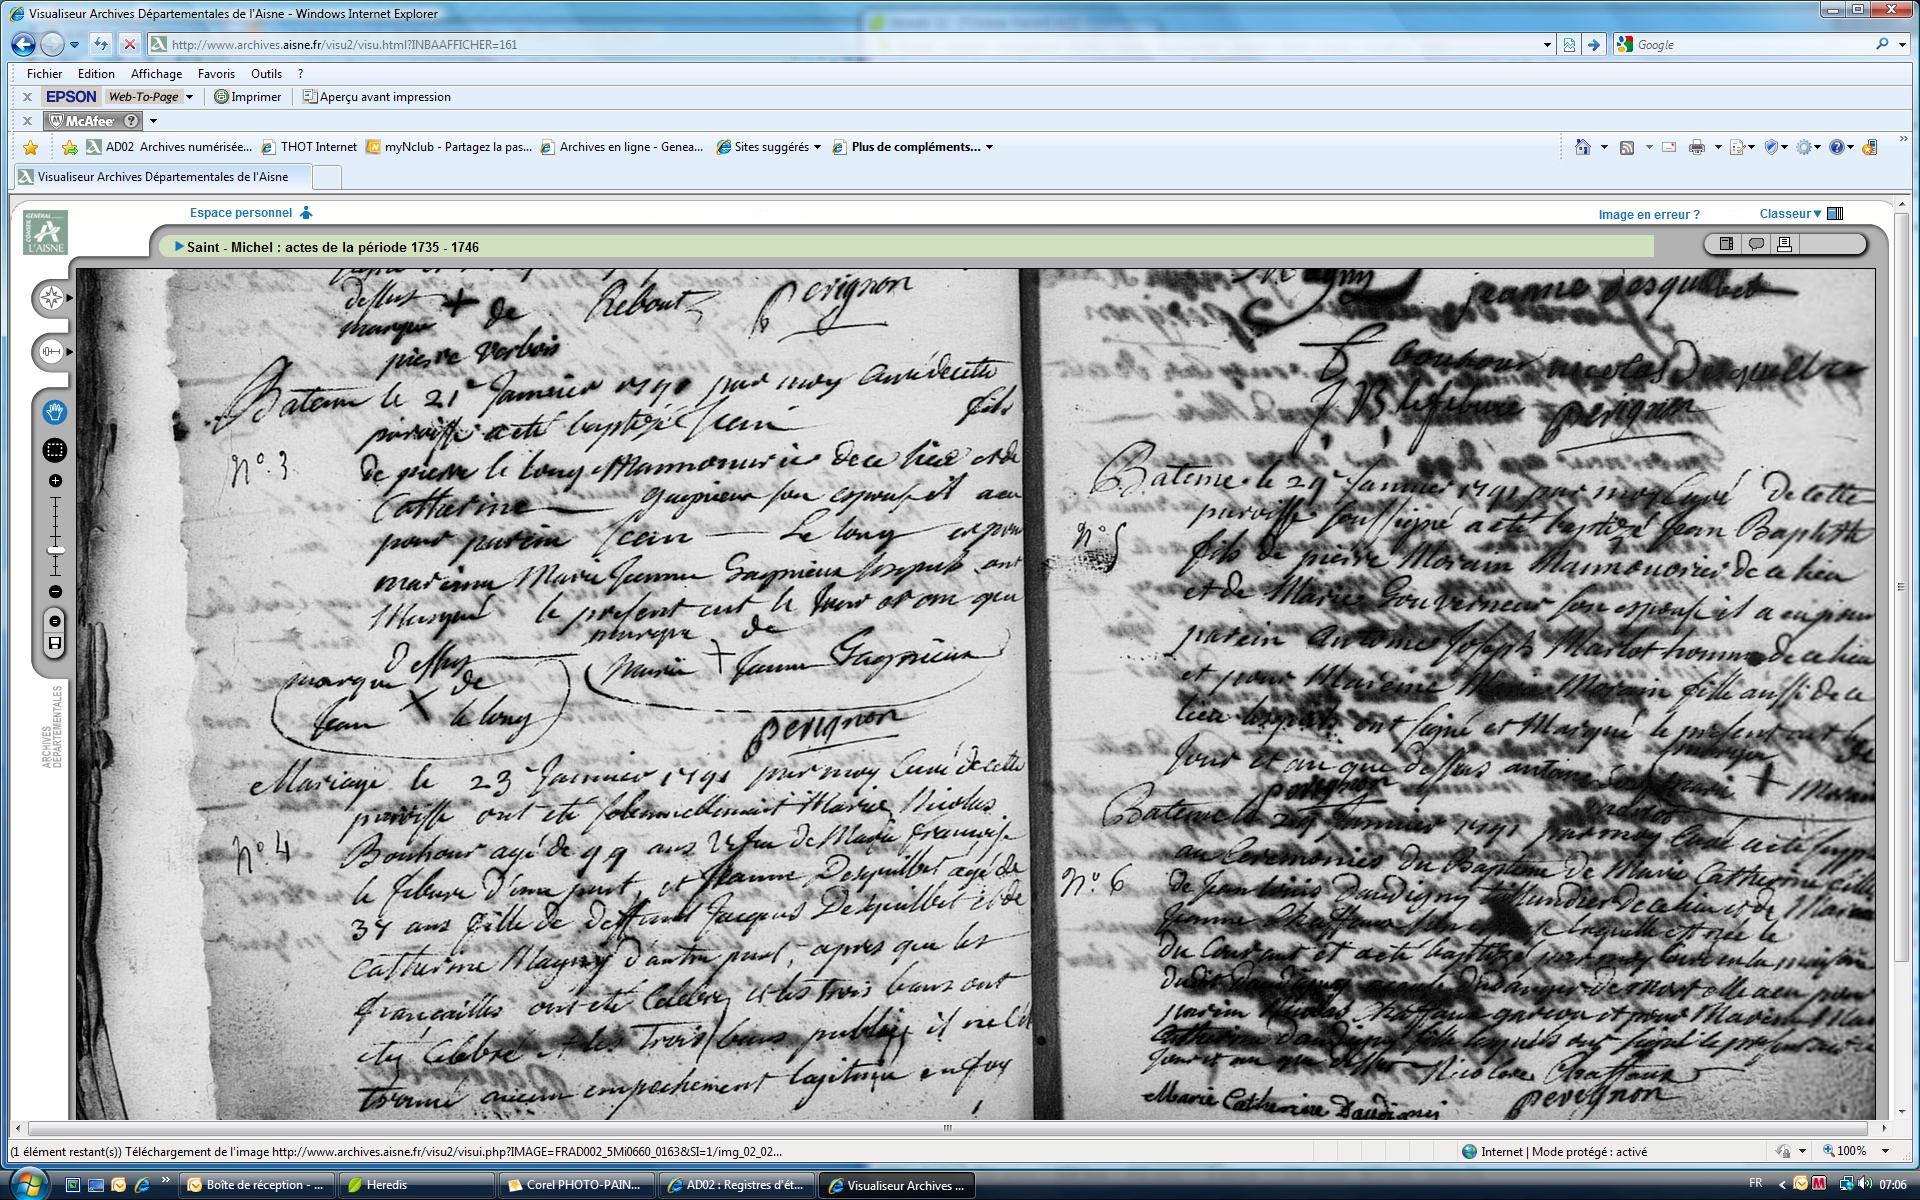 Visualiseur Archives Départementales de l'Aisne - Windows Internet Explorer
http://www.archives.aisne.fr/visu2/visu.html?INBAAFFICHER=161
Google
Fichier Edition Affichage Favoris Outils ?
x EPSON Web-To-Page Imprimer Aperçu avant impression
x McAfee ?
AD02 Archives numérisée... THOT Internet myNclub - Partagez la pas... Archives en ligne - Genea... Sites suggérés Plus de compléments...
Visualiseur Archives Départementales de l'Aisne
GÉNÉRAL CONSEIL L'AISNE
Espace personnel
Image en erreur ? Classeur
Saint - Michel : actes de la période 1735 - 1746
ARCHIVES DÉPARTEMENTALES
dessus
marque + de Rebout perignon
pierre verbois
Bateme le 21 Janvier 1791 par moy Curé de cette
paroisse a eté baptizé Jean fils
n°. 3
de pierre le long Mannouvrier de ce lieu et de
Catherine gagnieux son epouse il a eu
pour parein Jean Le long et pour
mareinne Marie Jeanne Gagnieux lesquels ont
Marqué le present act le Jour et an que
Dessus
marque de
marie + Jeanne Gagnieux
marque de
Jean X le long
perignon
Mariage le 23 Janvier 1791 par moy Curé de cette
paroisse ont eté solennellement Mariez Nicolas
n°. 4
Bonhour agé de ans de Marie françoise
le febure D'une part, et Jeanne Desquilbet agée de
34 ans fille de deffunt Jacques Desquilbet et de
Catherine Magny d'autre part, apres que les
françailles ont eté Celebrez et les trois bans ont
eté Celebré et les Trois bans publiez il ne
trouvé aucun empechement legitime
jeanne desquilbet
bonhour nicolas Desquilbet
J B lefebure perignon
Bateme le 29 Janvier 1791 par moy Curé de cette
paroisse soussigné a eté baptizé Jean Baptiste
n° 5
fils de pierre Morain Mannouvrier de ce lieu
et de Marie Gouverneur son epouse il a eu pour
parein Antoine Joseph Marlot homme de ce lieu
et pour Mareine Marie Morain fille aussi de ce
lieu lesquels ont signé et Marqué le present act le
Jour et an que dessus antoine
perignon
+ Morain
Bateme le 29 Janvier 1791 par moy Curé a eté
au Ceremonies du Bapteme de Marie Catherine fille
n°. 6
de Jean louis Daudigny de ce lieu et de Marie
Jeanne Chaffaux laquelle est née le
du Courant et a eté baptizé par moy Curé en la maison
dudit Daudigny a cause du danger de mort elle a eu pour
parein Nicolas Chaffaux garcon et pour Mareine Marie
Catherine Daudigny fille lesquels ont signé le present act
Jour et an que dessus Nicolas Chaffaux
Marie Catherine Daudigni perignon
(1 élément restant(s)) Téléchargement de l'image http://www.archives.aisne.fr/visu2/visui.php?IMAGE=FRAD002_5Mi0660_0163&SI=1/img_02_02...
Internet | Mode protégé : activé 100%
Boîte de réception - ... Heredis Corel PHOTO-PAIN... AD02 : Registres d'ét... Visualiseur Archives ... FR 07:06